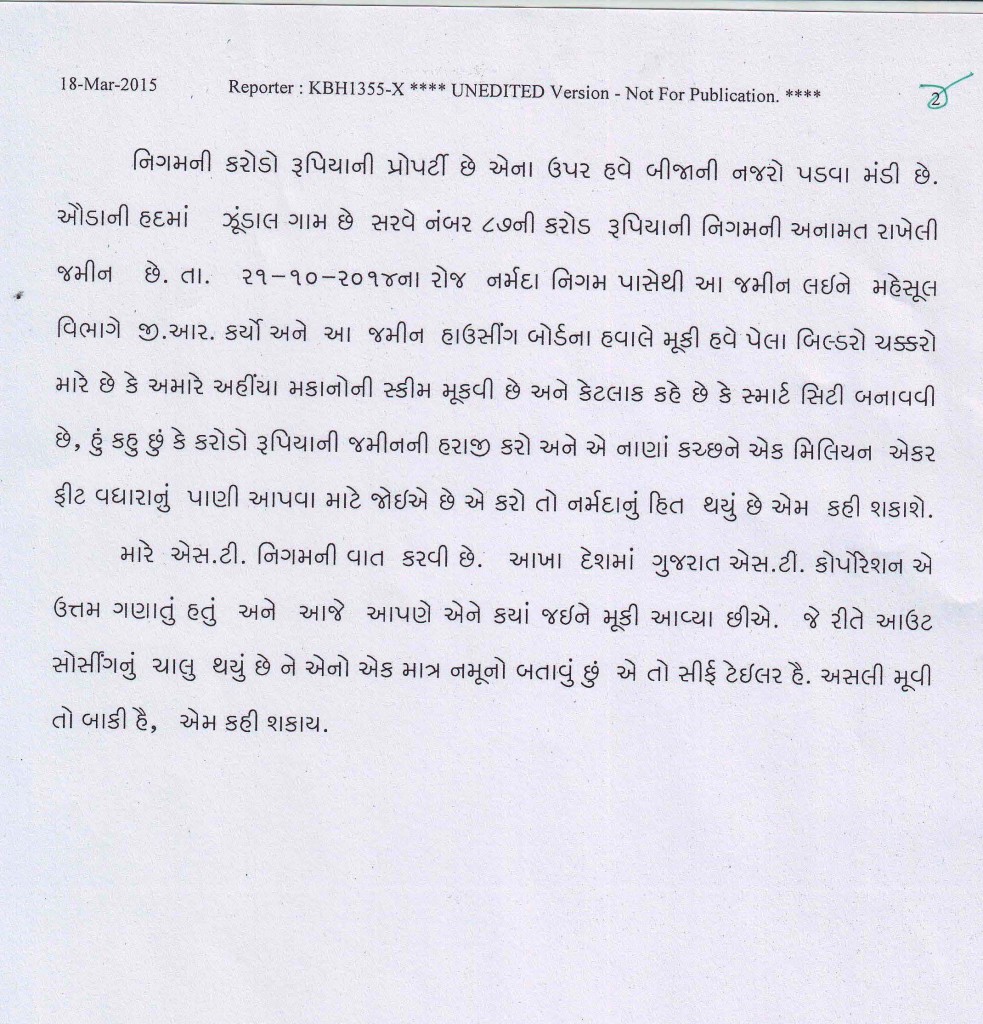 18-Mar-2015 Reporter : KBH1355-X **** UNEDITED Version - Not For Publication. **** 2
નિગમની કરોડો રૂપિયાની પ્રોપર્ટી છે એના ઉપર હવે બીજાની નજરો પડવા મંડી છે.
ઔડાની હદમાં ઝૂંડાલ ગામ છે સરવે નંબર ૮૭ની કરોડ રૂપિયાની નિગમની અનામત રાખેલી
જમીન છે. તા. ૨૧-૧૦-૨૦૧૪ના રોજ નર્મદા નિગમ પાસેથી આ જમીન લઈને મહેસૂલ
વિભાગે જી.આર. કર્યો અને આ જમીન હાઉસીંગ બોર્ડના હવાલે મૂકી હવે પેલા બિલ્ડરો ચક્કરો
મારે છે કે અમારે અહીંયા મકાનોની સ્કીમ મૂકવી છે અને કેટલાક કહે છે કે સ્માર્ટ સિટી બનાવવી
છે, હું કહુ છું કે કરોડો રૂપિયાની જમીનની હરાજી કરો અને એ નાણાં કચ્છને એક મિલિયન એકર
ફીટ વધારાનું પાણી આપવા માટે જોઈએ છે એ કરો તો નર્મદાનું હિત થયું છે એમ કહી શકાશે.
મારે એસ.ટી. નિગમની વાત કરવી છે. આખા દેશમાં ગુજરાત એસ.ટી. કોર્પોરેશન એ
ઉત્તમ ગણાતું હતું અને આજે આપણે એને કયાં જઈને મૂકી આવ્યા છીએ. જે રીતે આઉટ
સોર્સીંગનું ચાલુ થયું છે ને એનો એક માત્ર નમૂનો બતાવું છું એ તો સીર્ફ ટેઈલર હૈ. અસલી મૂવી
તો બાકી હૈ, એમ કહી શકાય.